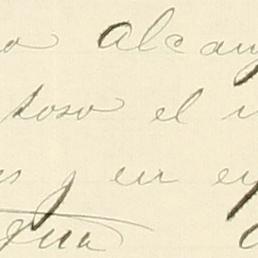 o alcan
toso el
s y en e
gua